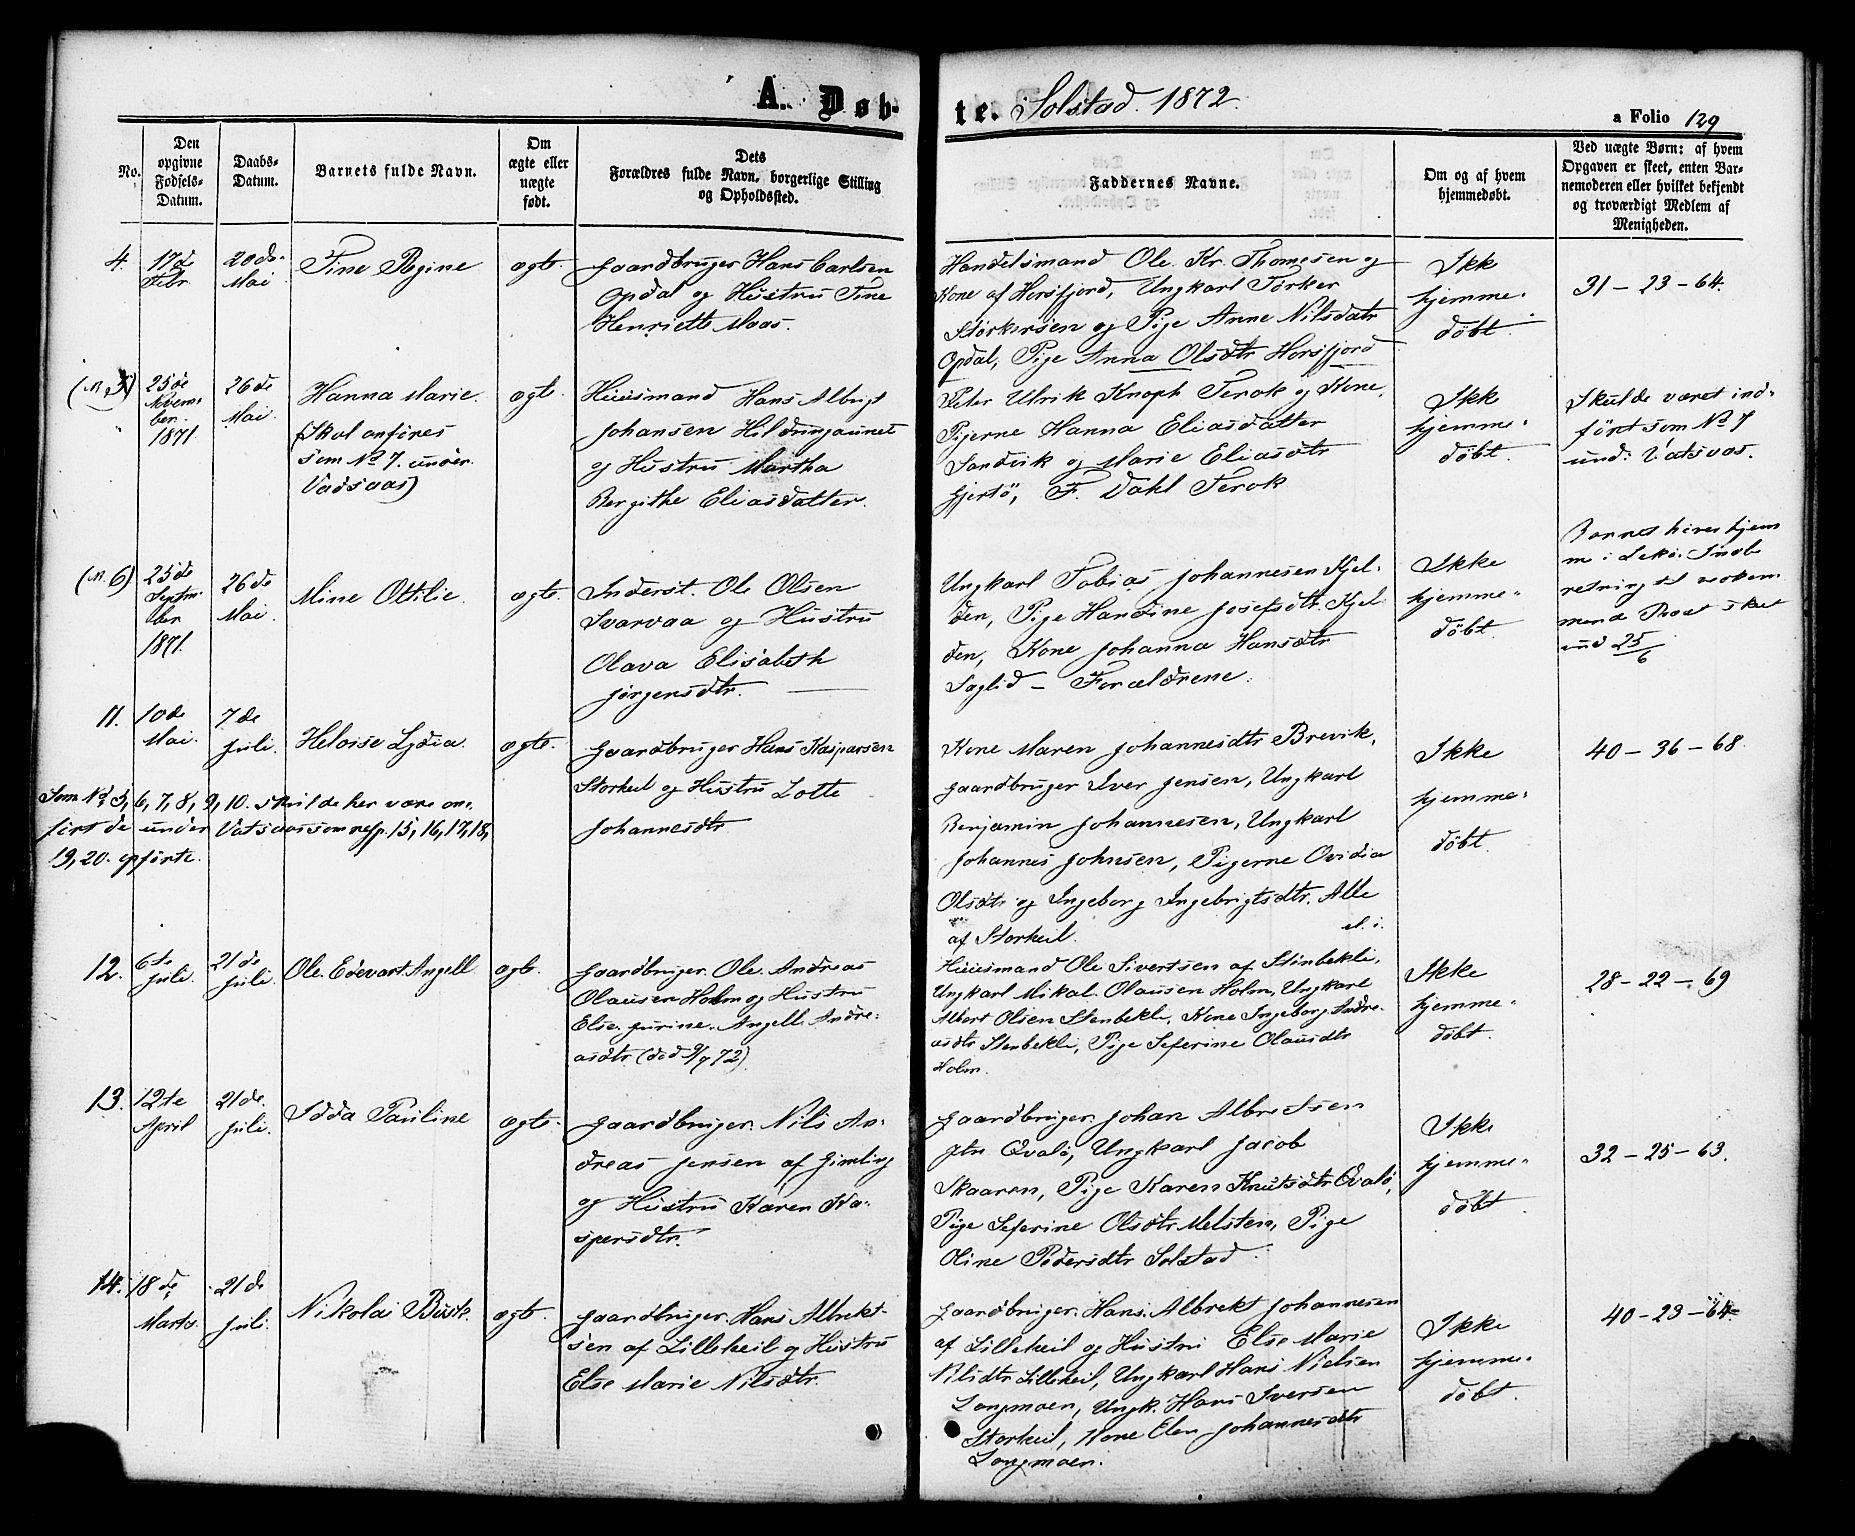 A. Døb-
te. Solstad. 1872.
a Folio 129
No.
Den
opgivne
Fødsels-
Datum.
Daabs-
Datum.
Barnets fulde Navn.
Om
ægte eller
uægte
født.
Dets
Forældres fulde Navn, borgerlige Stilling
og Opholdssted.
Faddernes Navne.
Om og af hvem
hjemmedøbt.
Ved uægte Børn: af hvem
Opgaven er skeet, enten Bar-
nemoderen eller hvilket bekjendt
og troværdigt Medlem af
Menigheden.
4.
17de
Febr.
20de
Mai
Tine Regine
ægte
Gaardbruger Hans Carlsen
Opdal og Hustru Tine
Henriette Moos.
Handelsmand Ole Kr. Thomesen og
Kone af Horsfjord, Ungkarl Torker
Storkersen og Pige Anne Nilsdatr
Opdal, Pige Anna Olsdtr Horsfjord
Ikk
hjemme-
døbt.
31 - 23 - 64.
25de
Novem-
ber
1871.
26de
Mai.
Hanna Marie.
(Skal anføres
som No 7. under
Vadsaas)
ægte.
Huusmand Hans Albrigt
Johansen Hildringaunet
og Hustru Martha
Bergithe Eliasdatter.
Peter Ulrik Knoph Terok og Kone,
Pigerne Hanna Eliasdatter
Sandvik og Marie Eliasdtr
Gjertö, F. Dahl Terok
Ikk
hjemme-
døbt.
Skulde været ind-
ført som No 7
und: Vatsvas.
(N. 6)
25de
Septm-
ber
1871.
26de
Mai.
Mine Ottilie.
ægte.
Inderst. Ole Olsen
Svarvaa og Hustru
Olava Elisabeth
Jørgensdtr.
Ungkarl Tobias Johannesen Kjel-
den, Pige Handine Josefsdtr Kjel
den, Kone Johanna Hansdtr
Saglid - Forældrene.
Ikke
hjemme-
døbt.
Barnet hører hjem
me i Lekö. Indbe
retning til vedkom
mende Præst sket
und 25/6
11.
10de
Mai.
7de
Juli.
Heloise Lydia.
ægte.
Gaardbruger Hans Kaspersen
Storkeil og Hustru Lotte
Johannesdtr.
Kone Maren Johannesdtr Brevik,
Gaardbruger Iver Jensen, Ungkarl
Benjamin Johannesen, Ungkarl
Johannes Johnsen, Pigerne Ovidia
Olsdtr og Ingeborg Ingebrigtsdtr. Alle
af Storkeil.
Ikke
hjemme-
døbt.
40 - 36 - 68.
Som No 5, 6, 7, 8, 9, 10. skulde her være an-
ført de under Vatsaas som resp. 15, 16, 17, 18,
19, 20. opførte.
12.
6te
Juli.
21de
Juli.
Ole Edevart Angell
ægte.
Gaardbruger. Ole. Andreas
Olausen Holm og Hustru
Else Jurine. Angell. Andre-
asdtr. (død 9/7 72)
Huusmand Ole Sivertsen af Stenbekli,
Ungkarl Mikal Olausen Holm, Ungkarl
Albert Olsen Stenbekli, Kone Ingeborg Andre-
asdtr Stenbekli, Pige Seferine Olausdtr
Holm.
Ikke
hjemme-
døbt.
28 - 22 - 69
13.
12te
April
21de.
Juli.
Idda Pauline
ægte.
Gaardbruger. Nils An-
dreas Jensen af Gimling
og Hustru Karen Ka-
spersdtr.
Gaardbruger. Johan Albretsen
Qvalö, Ungkarl Jacob
Skaaren, Pige Karen Knutsdtr Qvalö,
Pige Seferine Olsdtr Melsten, Pige
Oline Pedersdtr Solstad.
Ikke
hjemme-
døbt
32 - 25 - 63.
14.
18de
Marts.
21de
Juli.
Nikolai Busk.
ægte.
Gaardbruger. Hans Albrekt-
sen af Lillekeil og Hustru
Else Marie Nilsdtr.
Gaardbruger. Hans. Albrekt Johannesen
af Lillekeil og Hustru Else Marie
Nilsdtr Lillekeil, Ungkarl Hans Nielsen
Langmoen, Ungk. Hans Iversen
Storkeil, Kone Elen Johannesdtr
Langmoen.
Ikke
hjemme-
døbt.
40 - 23 - 64.